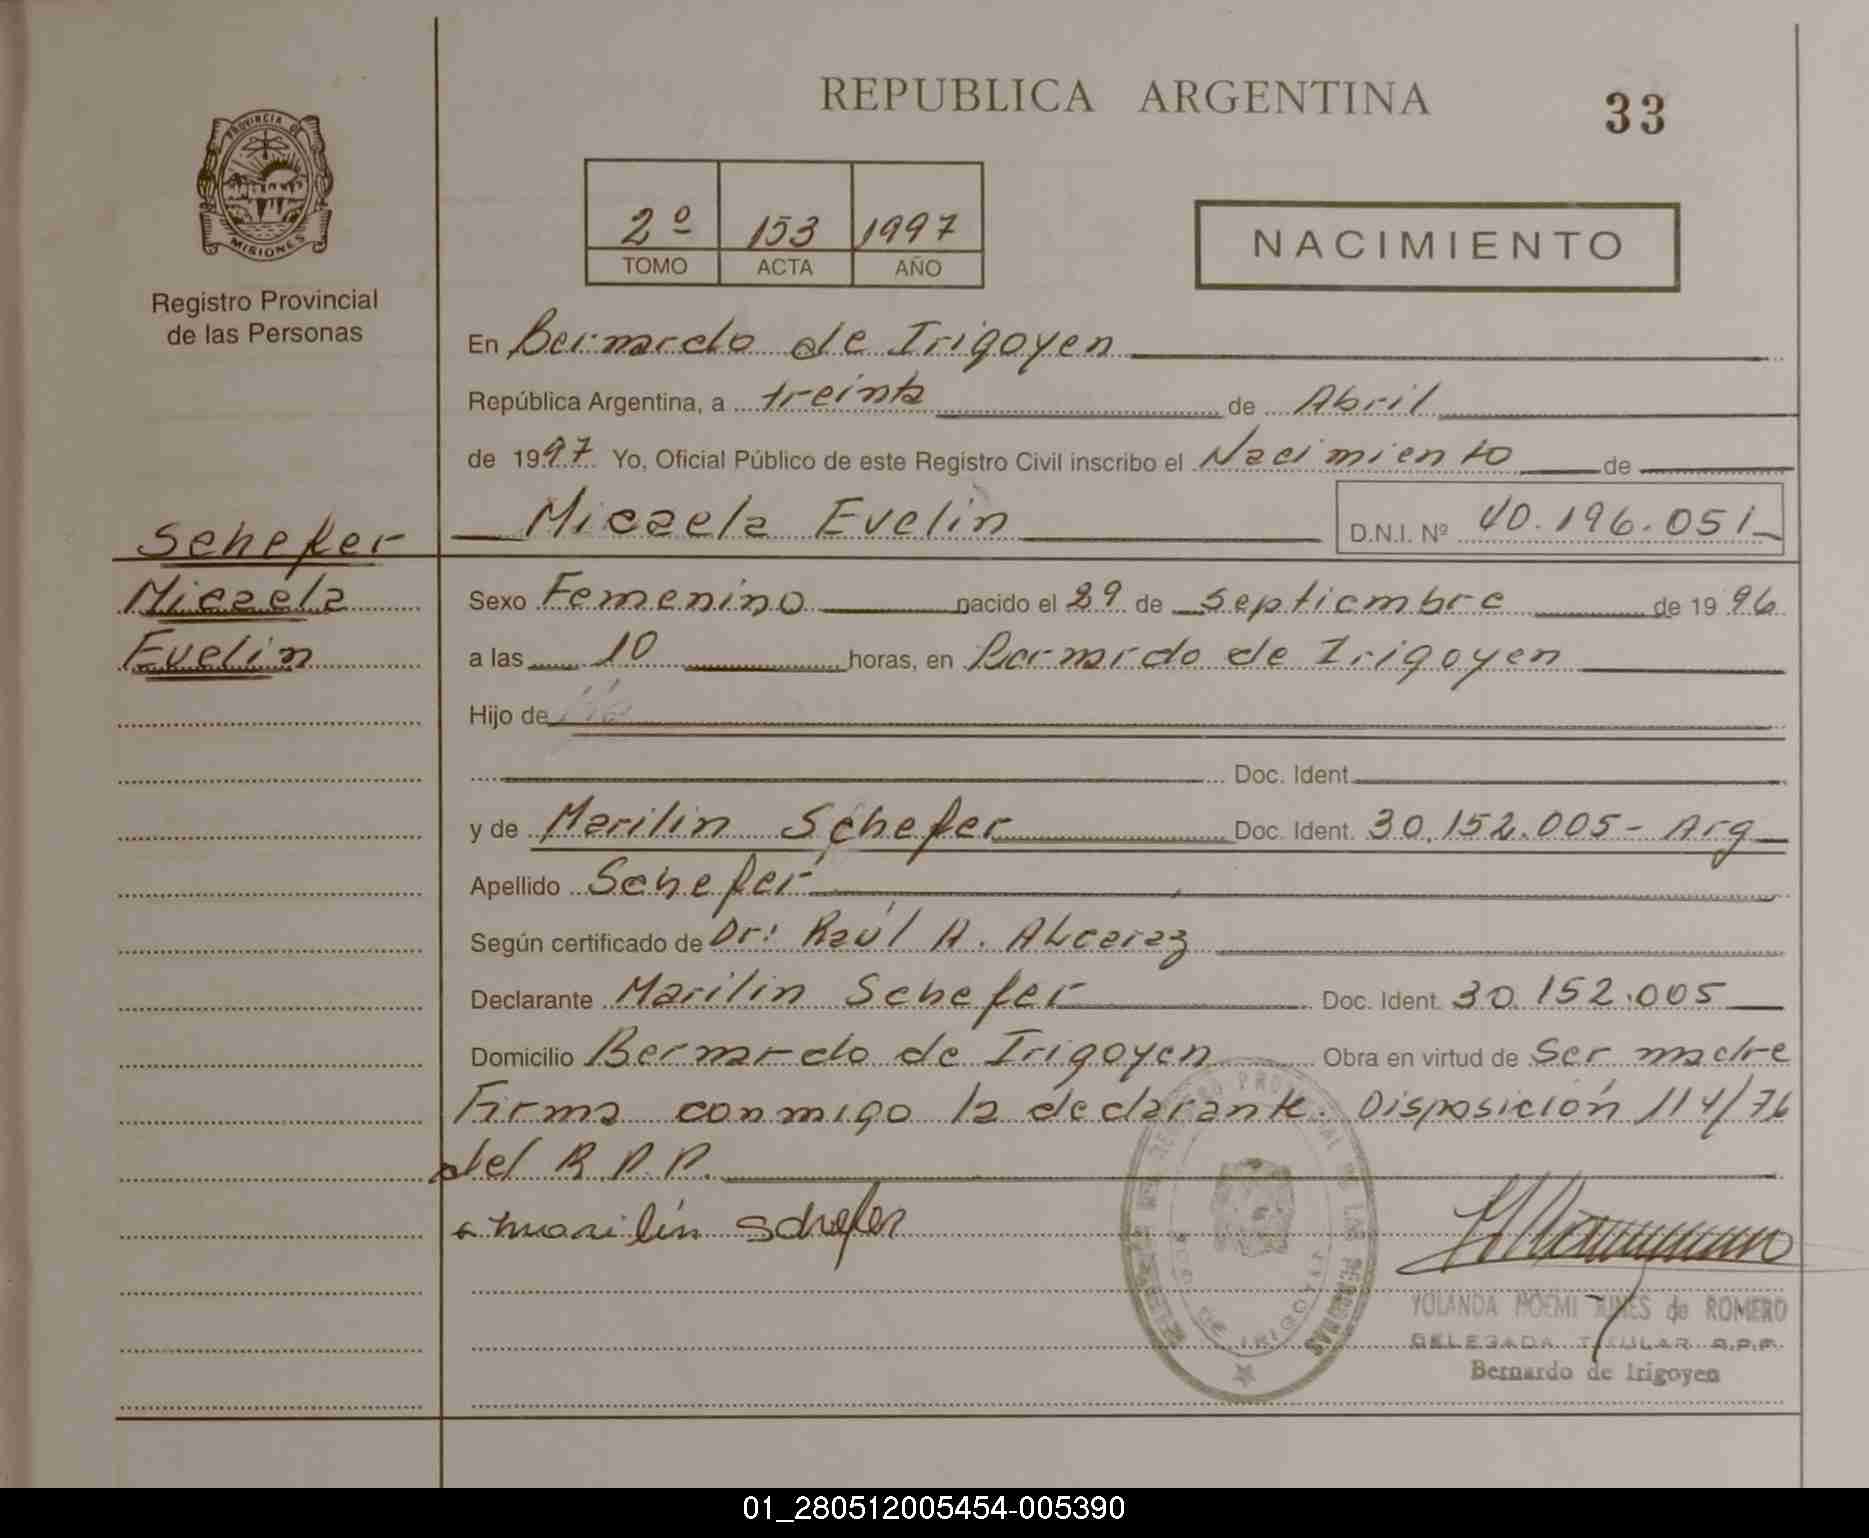 REPUBLICA ARGENTINA
33
PROVINCIA DE
MISIONES
Registro Provincial
de las Personas
2º 153 1997
TOMO ACTA AÑO
NACIMIENTO
En Bernardo de Irigoyen
República Argentina, a treinta de Abril
de 1997 Yo, Oficial Público de este Registro Civil inscribo el Nacimiento de
Schefer
Micaela Evelin D.N.I. Nº 40.196.051
Micaela
Sexo Femenino nacido el 29 de septiembre de 1996
Evelin
a las 10 horas, en Bernardo de Irigoyen
Hijo de
Doc. Ident.
y de Marilin Schefer Doc. Ident. 30.152.005 - Arg
Apellido Schefer
Según certificado de Dr: Raúl A. Alcaraz
Declarante Marilin Schefer Doc. Ident. 30.152.005
Domicilio Bernardo de Irigoyen Obra en virtud de Ser madre
Firma conmigo la declarante. Disposición 114/76
del R.P.P.
marilín schefer
DE IRIGOYEN
YOLANDA NOEMI de ROMERO
DELEGADA TITULAR R.P.P.
Bernardo de Irigoyen
01_280512005454-005390